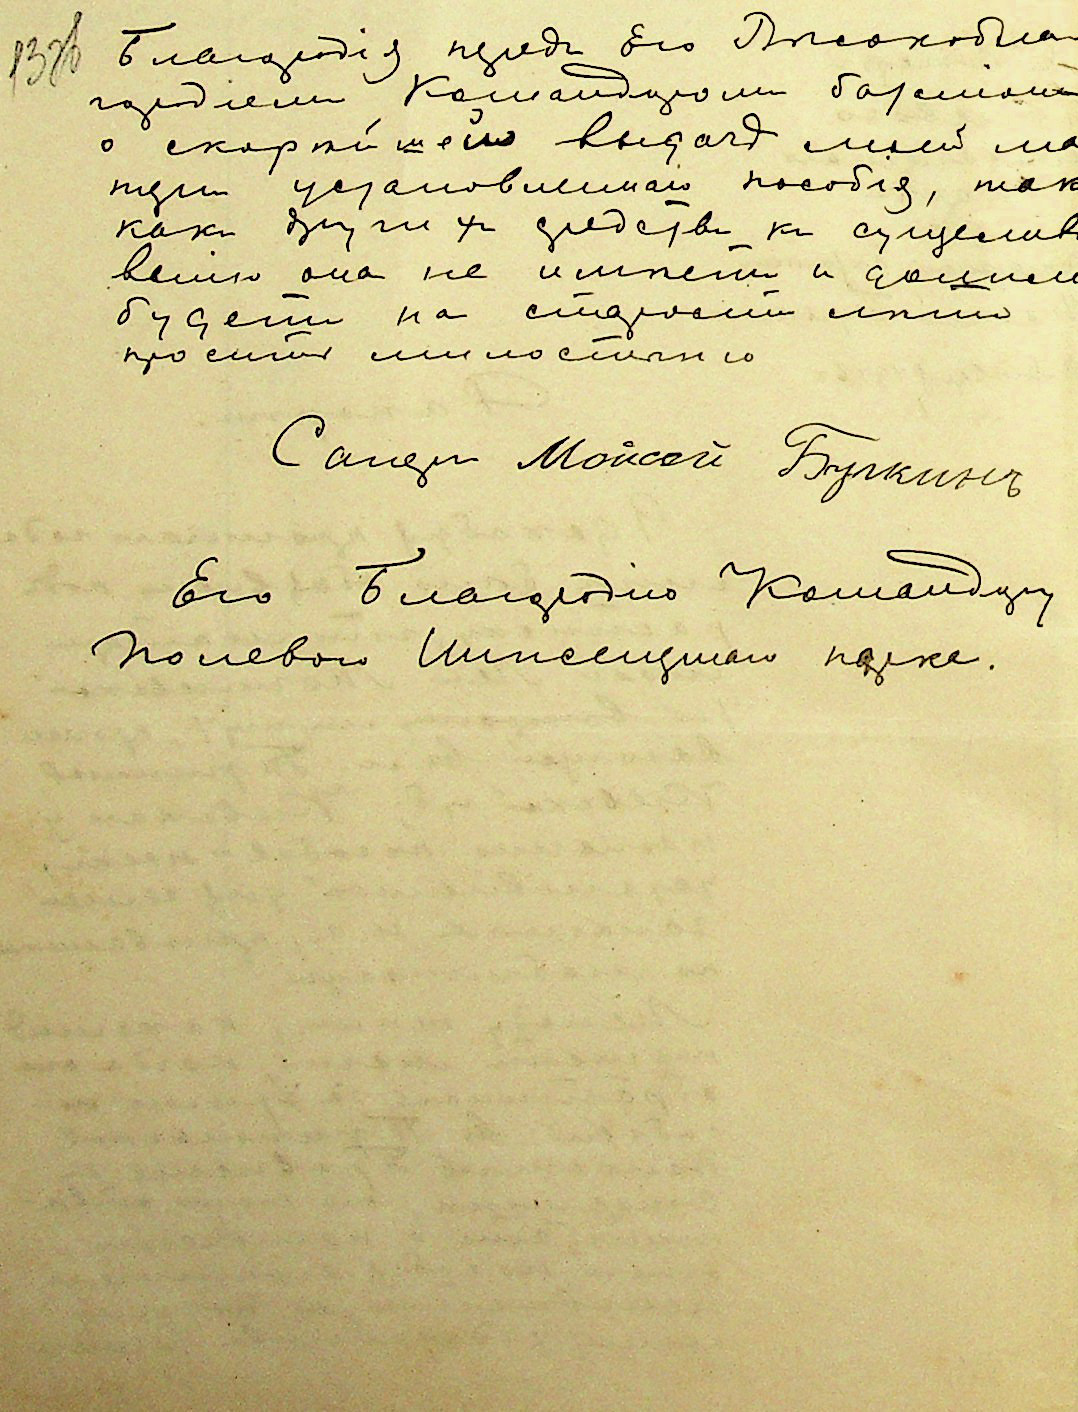 137б
Благородія предъ Его Высокобла
городіемъ Командиромъ баталіона
о скорѣйшей выдачѣ моей ма
тери установленнаго пособія, так
какъ другихъ средствъ къ существо
ванію она не имѣетъ и должна
будетъ на старости лѣтъ
просить милостыню
Саперъ Мойсей Бучкинъ
Его Благородію Командиру
Полевого Инженернаго парка.